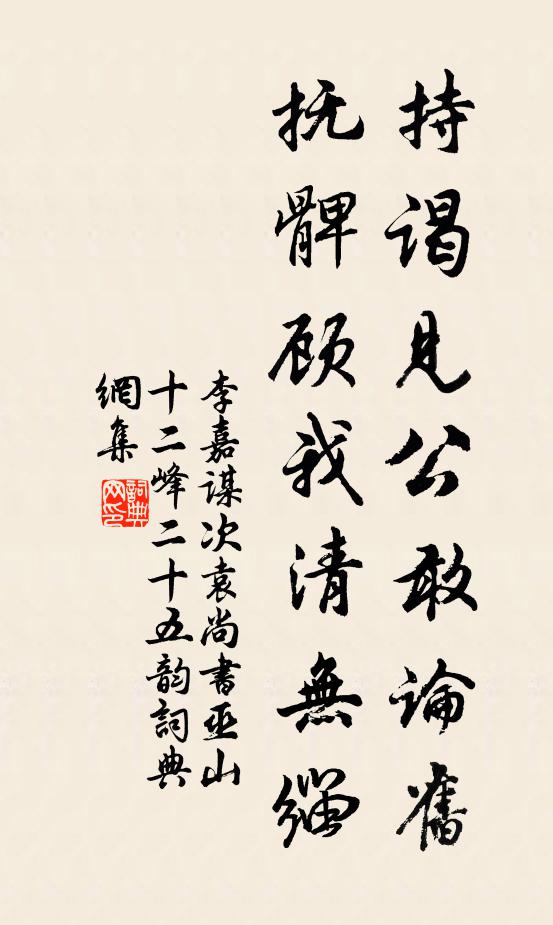 持謁見公敢論舊
抚髀顾我清無緇
李嘉謀次袁尚書巫山
十二峰二十五韵詞典
網集
詞典
网印